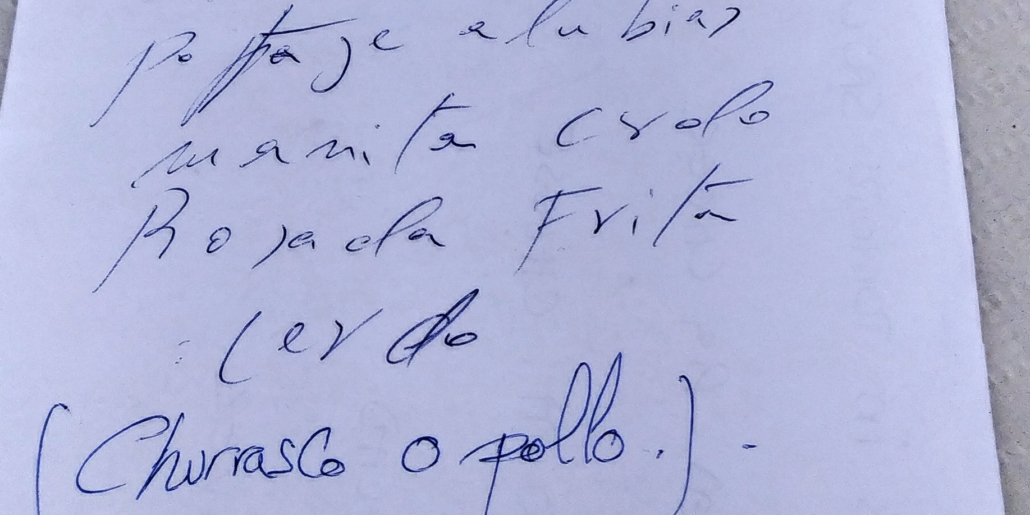 Pottaje alubias
manita crdo
Rosada Frita
cerdo
(Churrasco o pollo.) -